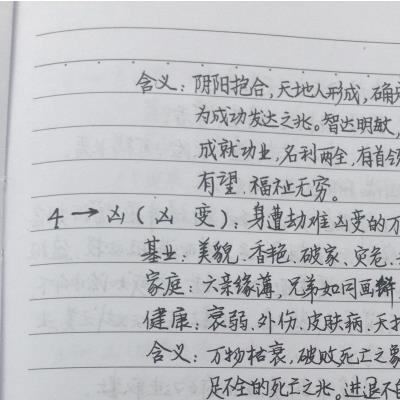 含义：阴阳抱合，天地人形成，确
为成功发达之兆。智达明敏，
成就功业，名利两全，有首领
有望、福祉无穷。
4→凶（凶变）：身遭劫难凶变的万
基业：美貌、香艳、破家、灾危、
家庭：六亲缘薄，兄弟如同画饼
健康：衰弱、外伤、皮肤病、夭
含义：万物枯衰，破败死亡之象
足不全的死亡之兆。进退不